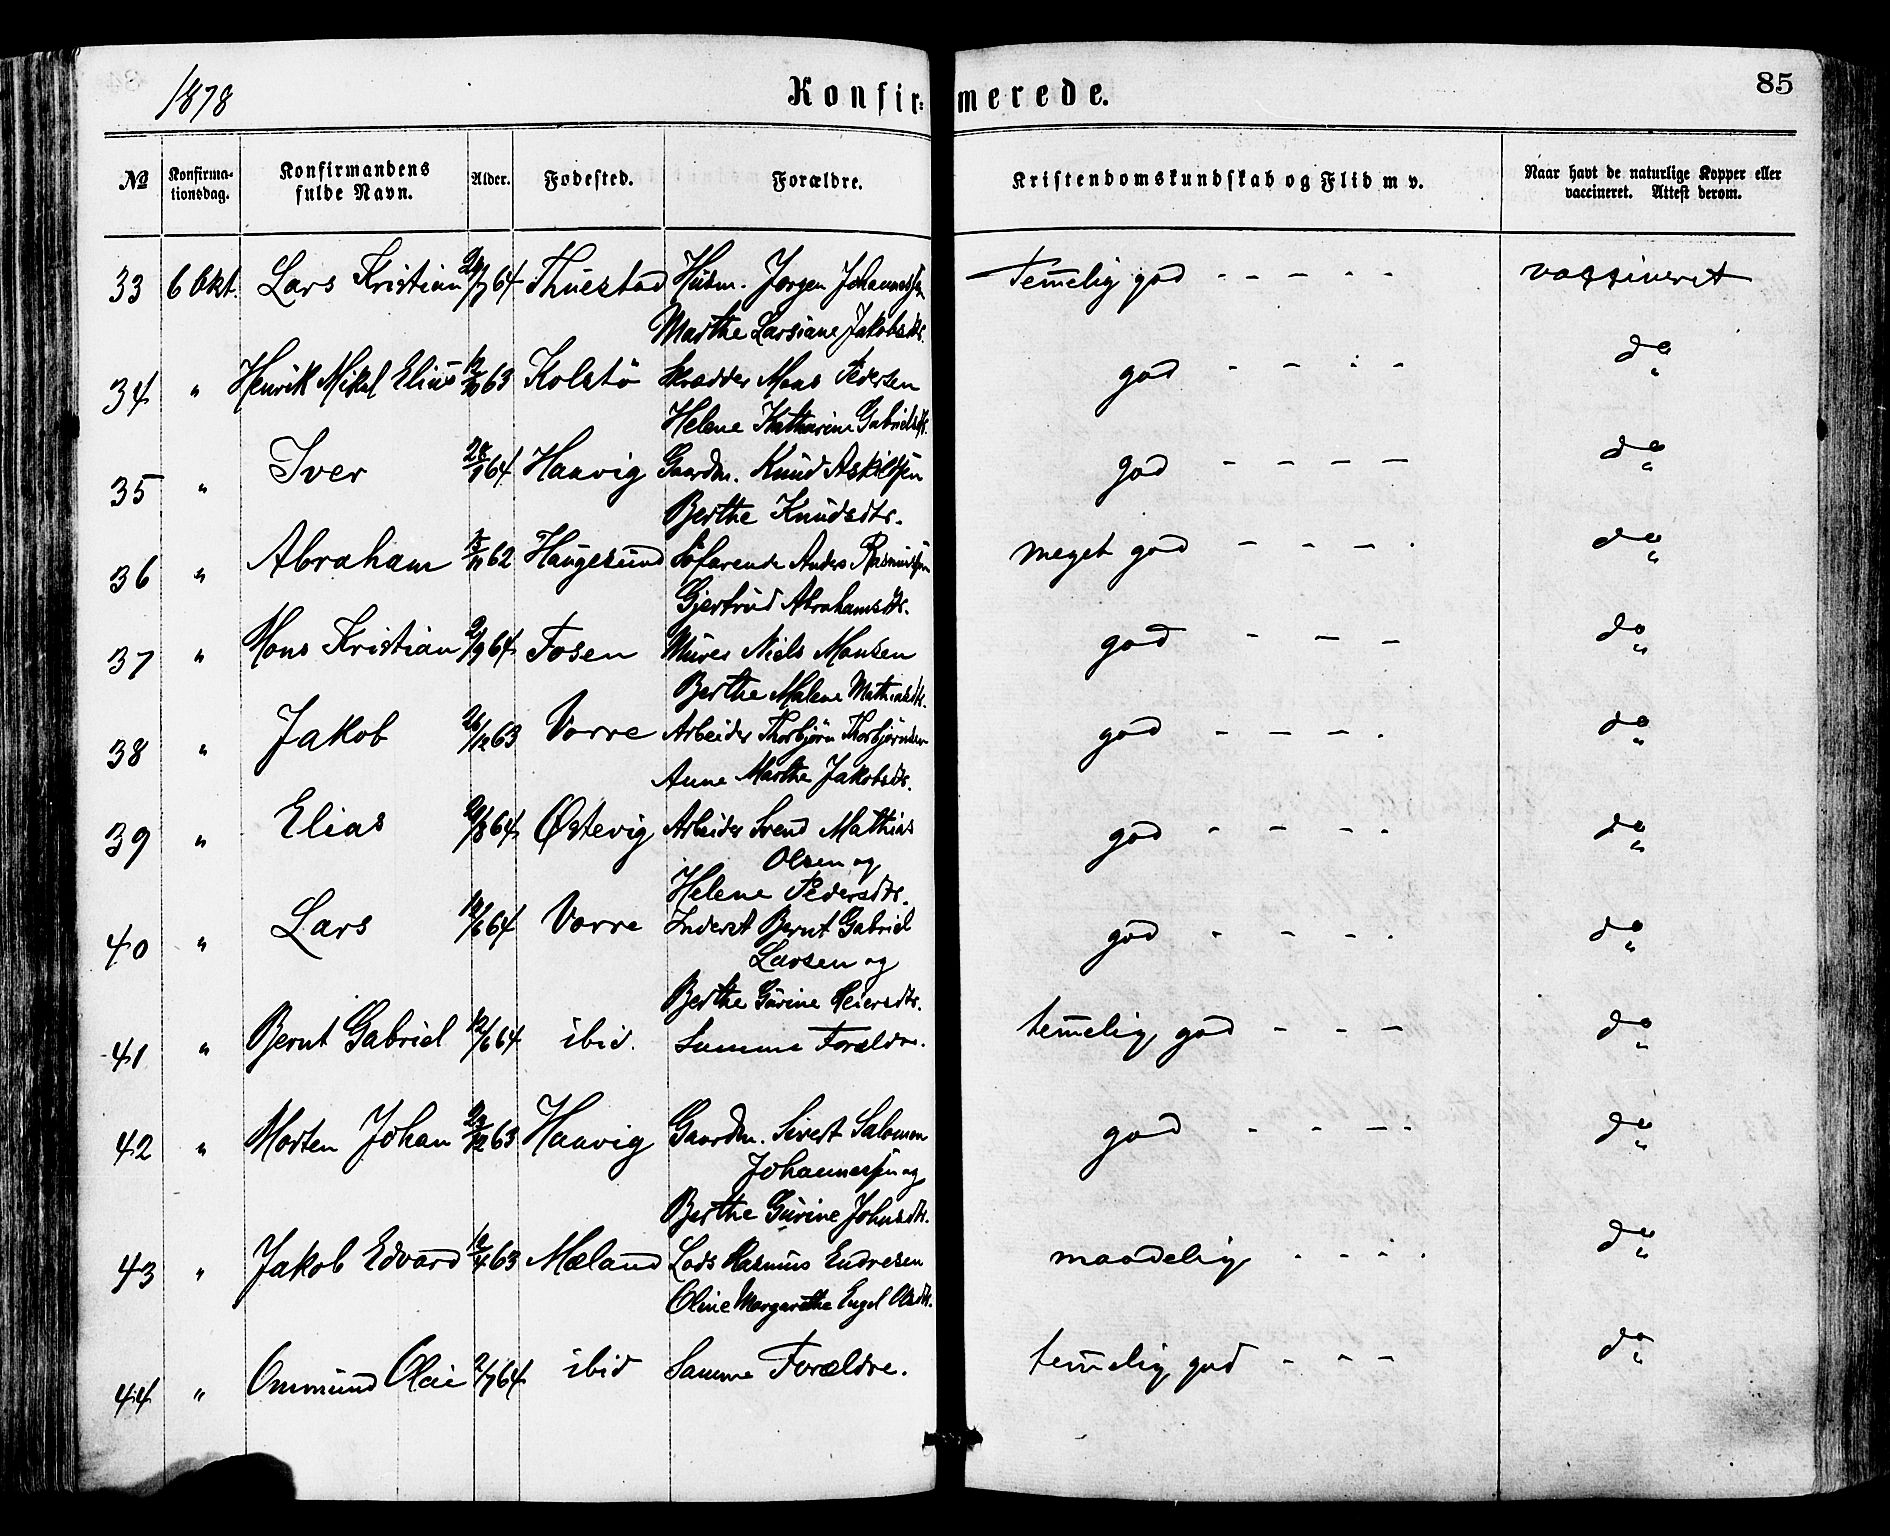 1878 Konfir= merede. 85
№ Konfirma-tionsdag. Konfirmandens fulde Navn. Alder. Fødested. Forældre. Kristendomskundskab og Flid m v. Naar havt de naturlige Kopper eller vaccineret. Attest derom.
33 6 Okt. Lars Kristian /7 64 Thuestad Husm. Jørgen Johannessen Temelig god - - - - - vassineret
Marthe Larsiane Jakobsdtr.
34 " Henrik Mikal Elius 12/10 63 Kolstø Skrædder Mons Pedersen god - - - - do "
Helene Katharine Gabrielsdtr.
35 " Iver 28/1 64 Haavig Gaardm. Knud Askilsen god - - - - do "
Berthe Knudsdtr.
36 " Abraham 62 Haugesund Søfarende Anders Rasmussen meget god - - - - do "
Gjertrud Abrahamsdtr.
37 " Mons Kristian 2/9 64 Fosen Murer Niels Monsen god - - - do "
Berthe Malene Mathiasdtr.
38 " Jakob 26/12 63 Vorre Arbeider Thorbjørn Thorbjørnsen god - - - - do "
Anne Marthe Jakobsdtr.
39 " Elias 29/8 64 Østevig Arbeider Svend Mathias god - - - - do "
Olsen og
Helene Pedersdtr.
40 " Lars 12/6 64 Vorre Inderst Bernt Gabriel god - - - - do "
Larsen og
Berthe Gurine Reiersdtr.
41 " Bernt Gabriel 12/6 64 ibid. Samme Forældre. temelig god - - - do "
42 " Morten Johan 23/12 63 Haavig Gaardm. Sivert Salomon god - - - - do "
Johannessen og
Berthe Gurine Johnsdtr.
43 " Jakob Edvard 12/4 63 Mæland Lods Rasmus Endresen maadelig - - - - do "
Oline Margarethe Engel Olsdtr.
44 " Ommund Olai 2/7 64 ibid Samme Forældre. temelig god - - - do "